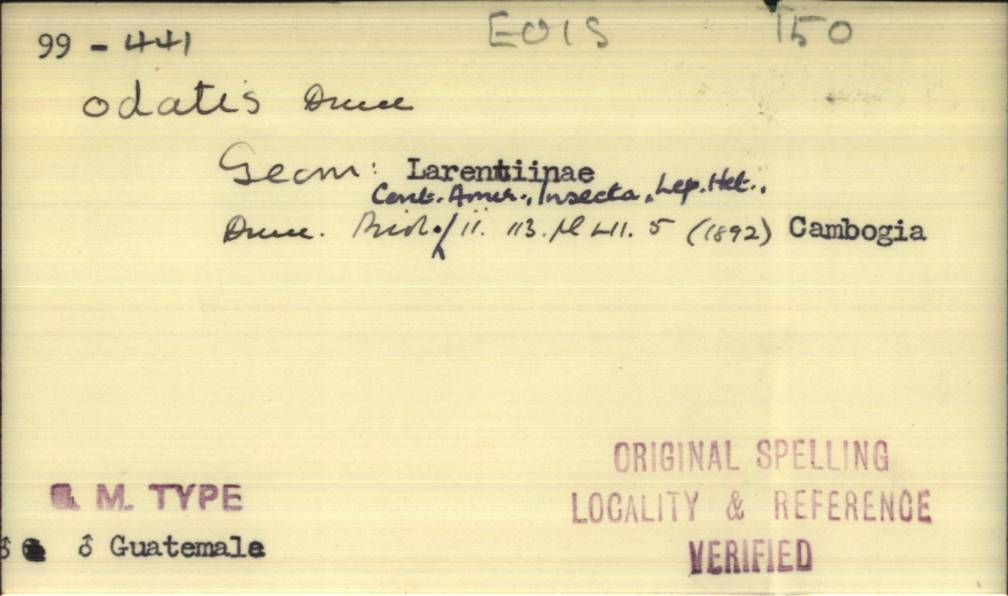 99 - 441 EOIS 150
odatis Druce
Geom: Larentiinae
Cent. Amer., Insecta, Lep. Het.,
Druce. Biol. ii. 113. Pl LII. 5 (1892) Cambogia
ORIGINAL SPELLING
M. TYPE LOCALITY & REFERENCE
♂ ♂ Guatemala VERIFIED